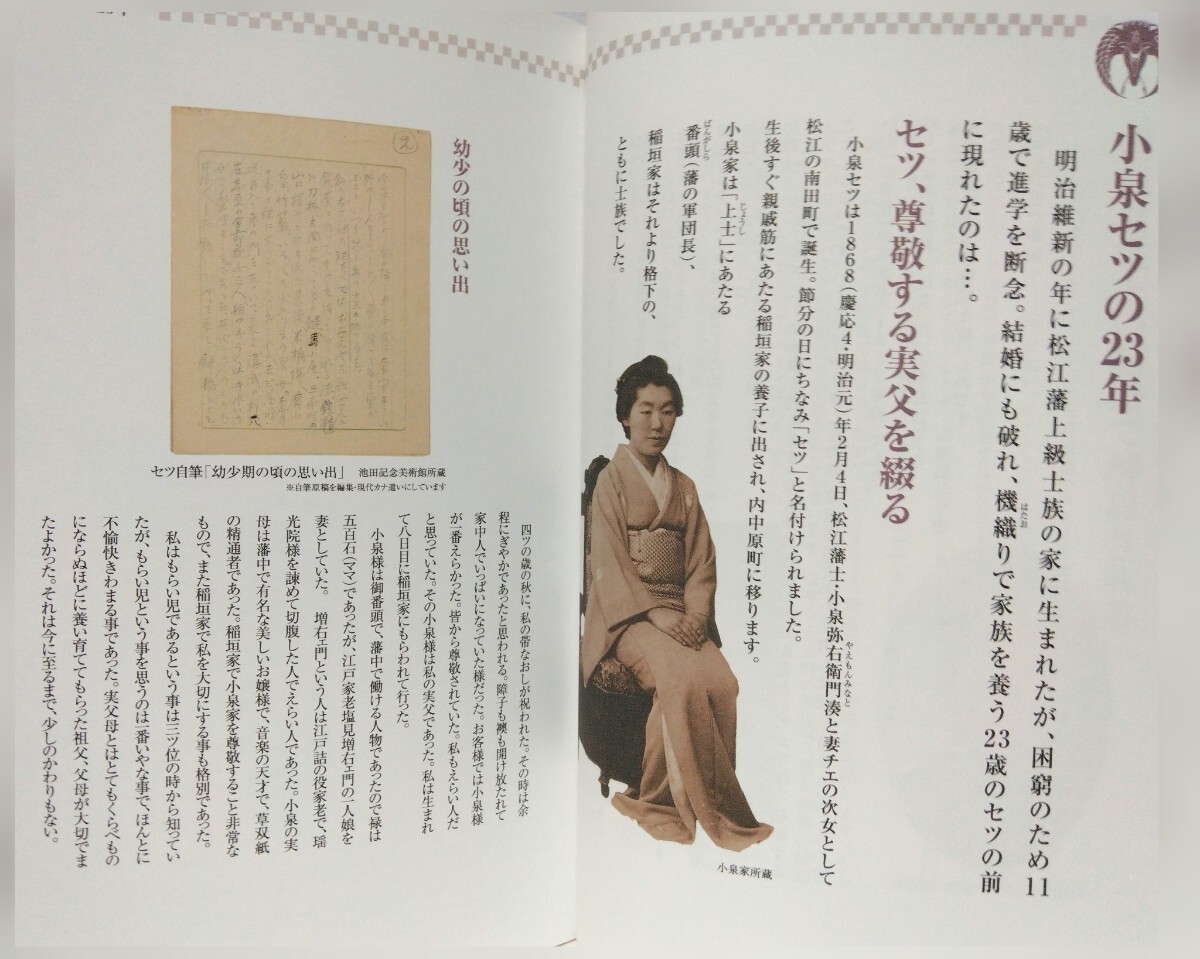 小泉セツの23年
明治維新の年に松江藩上級士族の家に生まれたが、困窮のため11
歳で進学を断念。結婚にも破れ、機織りで家族を養う23歳のセツの前
はたお
に現れたのは…。
セツ、尊敬する実父を綴る
小泉セツは1868(慶応4・明治元)年2月4日、松江藩士・小泉弥右衛門湊と妻チエの次女として
やえもんみなと
松江の南田町で誕生。節分の日にちなみ「セツ」と名付けられました。
生後すぐ親戚筋にあたる稲垣家の養子に出され、内中原町に移ります。
小泉家は「上士」にあたる
じょうし
番頭(藩の軍団長)、
ばんがしら
稲垣家はそれより格下の、
ともに士族でした。
小泉家所蔵
幼少の頃の思い出
セツ自筆「幼少期の頃の思い出」 池田記念美術館所蔵
※自筆原稿を編集・現代カナ遣いにしています
四ツの歳の秋に、私の帯なおしが祝われた。その時は余
程にぎやかであったと思われる。障子も襖も開け放たれて
家中人でいっぱいになっていた様だった。お客様では小泉様
が一番えらかった。皆から尊敬されていた。私もえらい人だ
と思っていた。その小泉様は私の実父であった。私は生まれ
て八日目に稲垣家にもらわれて行った。
小泉様は御番頭で、藩中で働ける人物であったので禄は
五百石(ママ)であったが、江戸家老塩見増右ェ門の一人娘を
妻としていた。 増右ェ門という人は江戸詰の役家老で、瑶
光院様を諫めて切腹した人でえらい人であった。小泉の実
母は藩中で有名な美しいお嬢様で、音楽の天才で、草双紙
の精通者であった。稲垣家で小泉家を尊敬すること非常な
もので、また稲垣家で私を大切にする事も格別であった。
私はもらい児であるという事は三ツ位の時から知ってい
たが、もらい児という事を思うのは一番いやな事で、ほんとに
不愉快きわまる事であった。実父母とはとてもくらべもの
にならぬほどに養い育ててもらった祖父、父母が大切でま
たよかった。それは今に至るまで、少しのかわりもない。